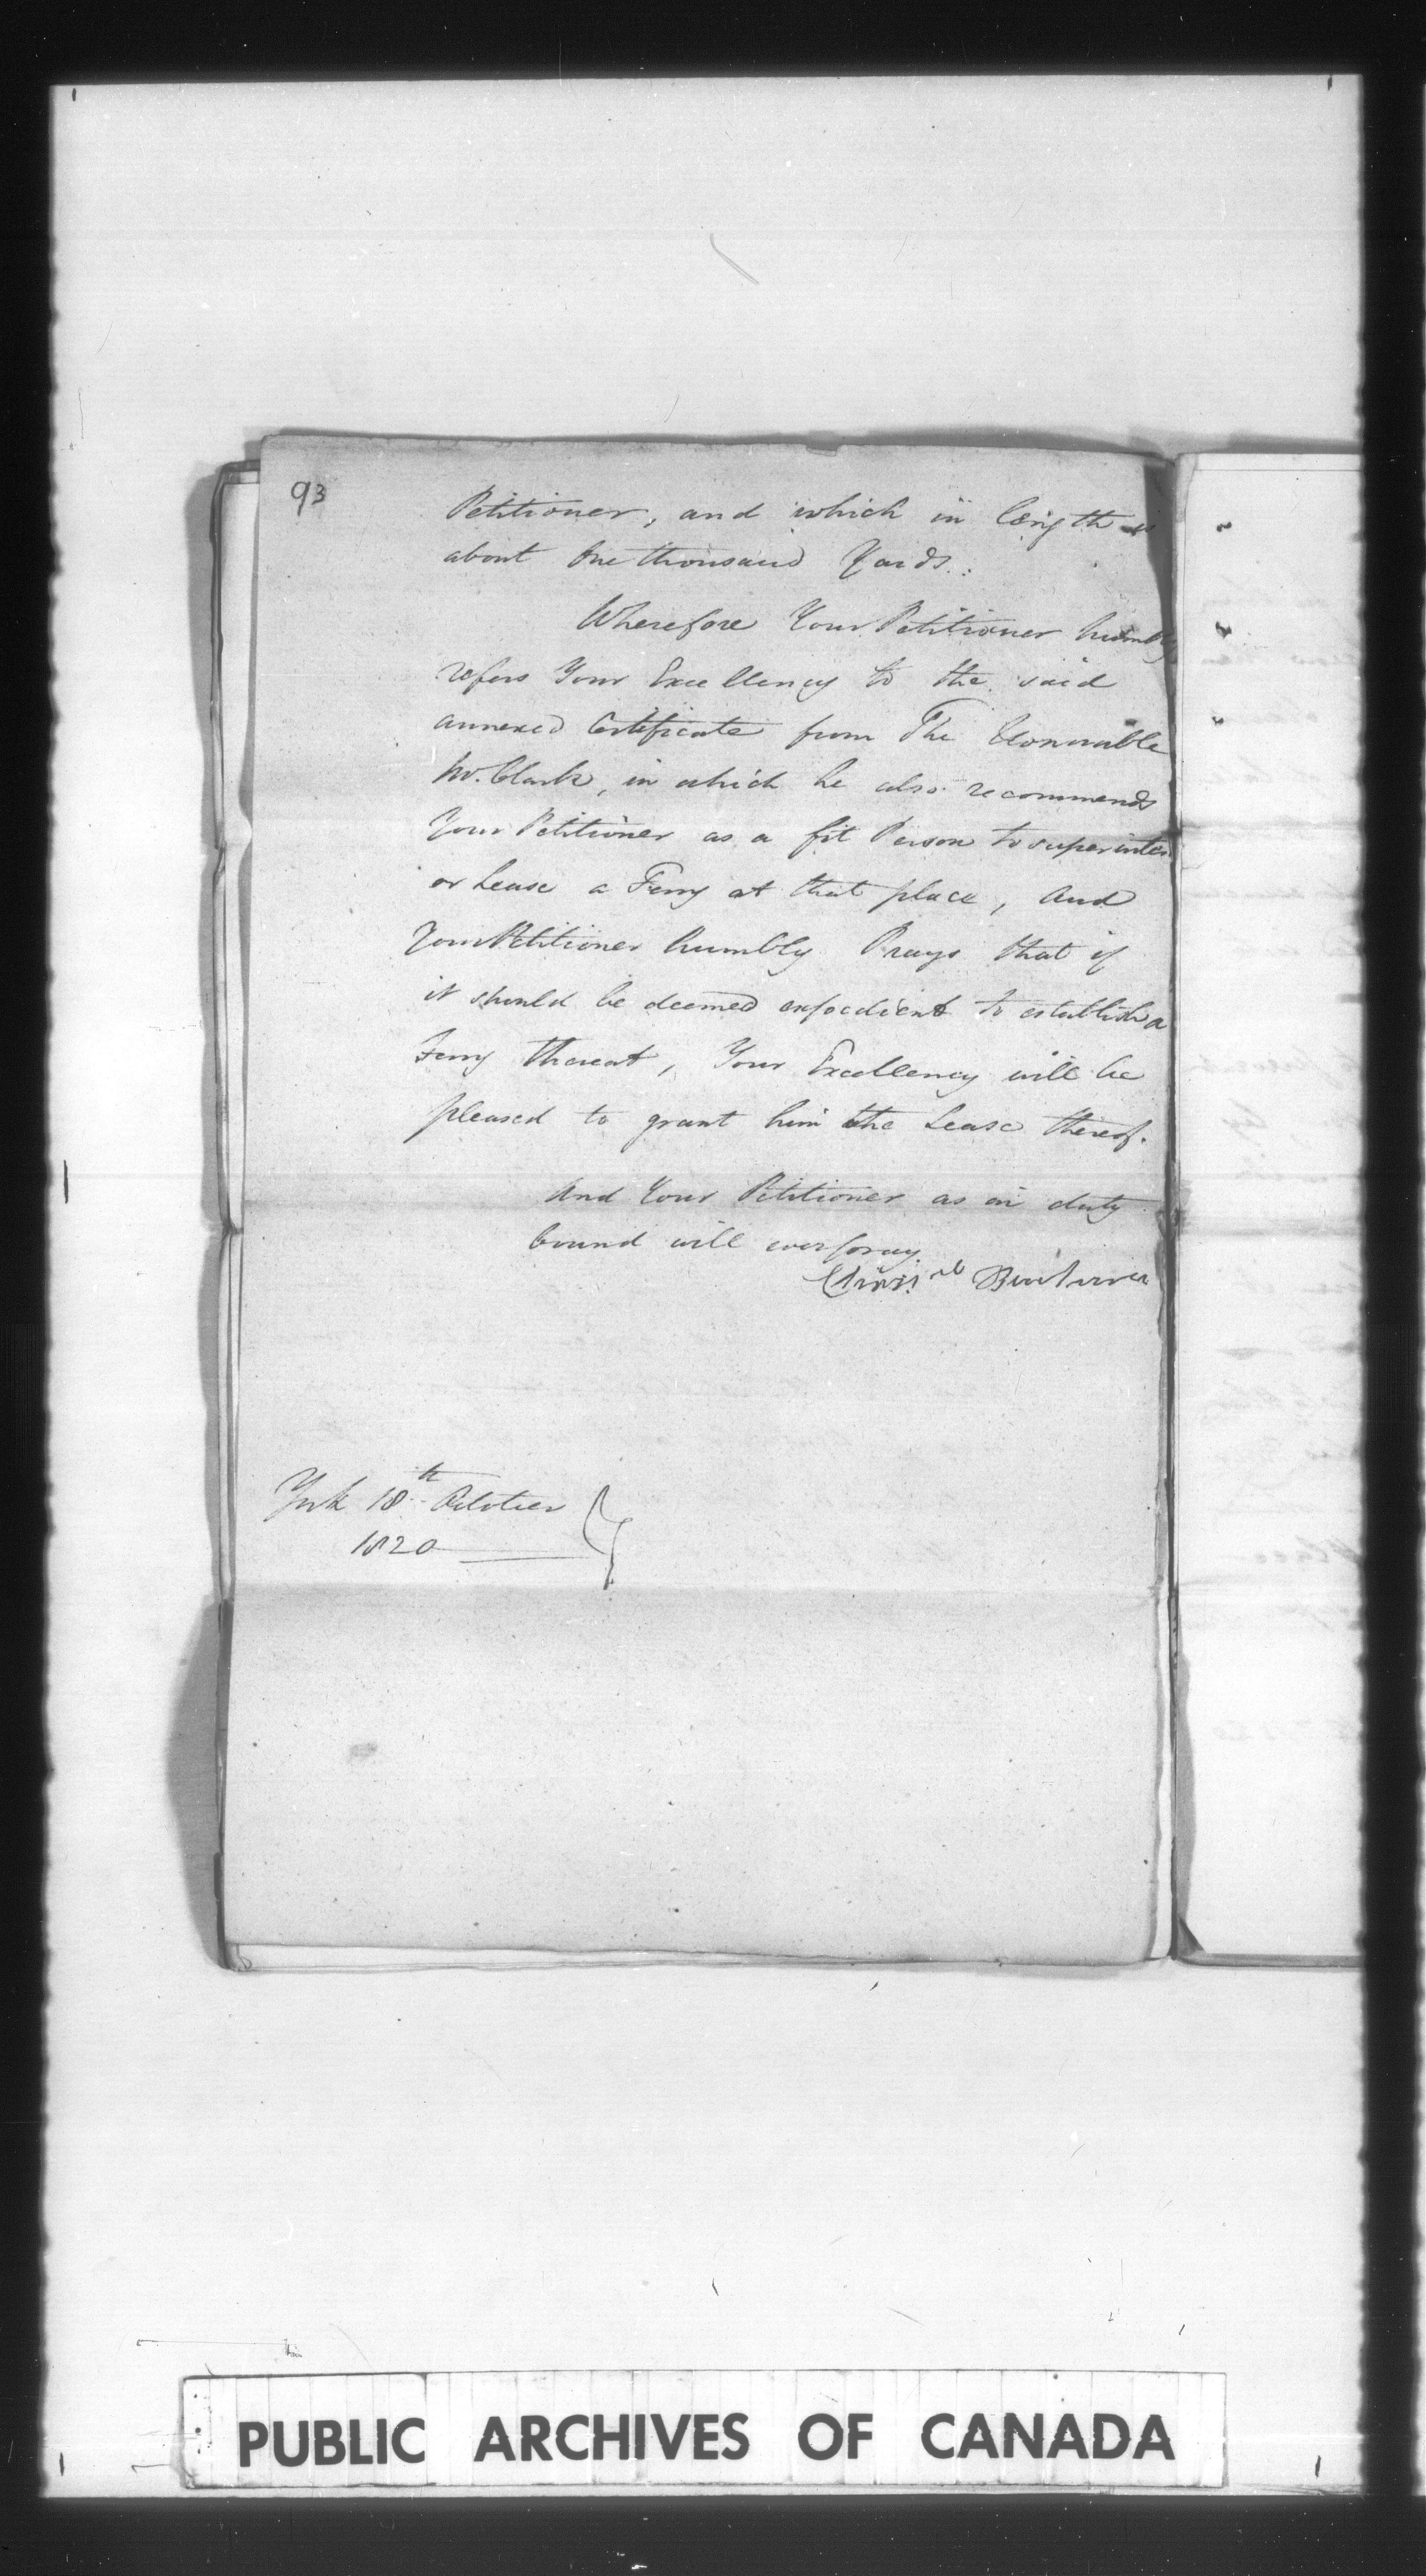 93
Petitioner, and which in length is
about One thousand Yards.
Wherefore Your Petitioner humbly
refers Your Excellency to the said
annexed Certificate from The Honourable
Mr. Clark, in which he also recommends
Your Petitioner as a fit Person to superinten
or Lease a Ferry at that place, And
Your Petitioner humbly Prays that if
it should be deemed expedient to establish a
Ferry thereat, Your Excellency will be
pleased to grant him the Lease thereof.
And Your Petitioner as in duty
bound will ever pray
York 18th October
1820
PUBLIC ARCHIVES OF CANADA